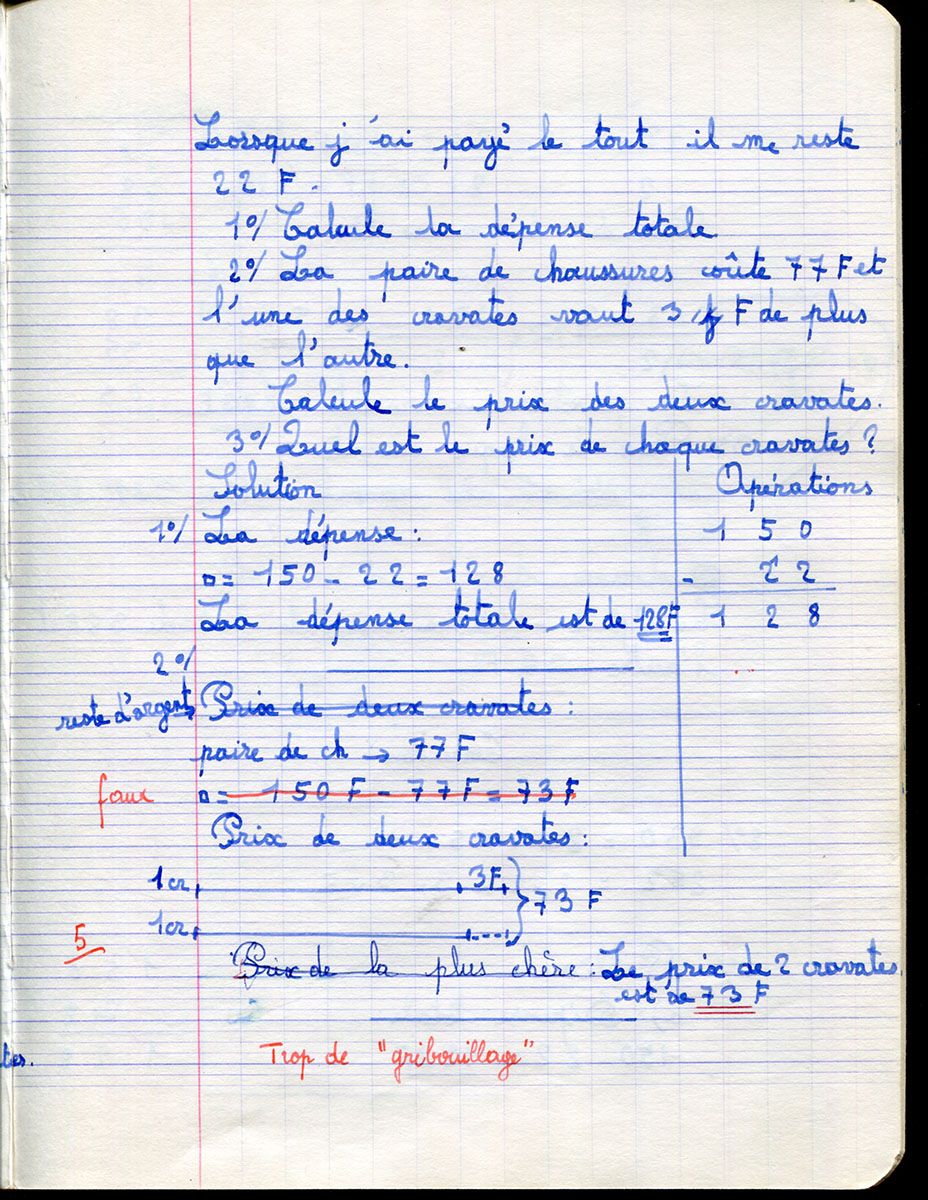 Lorsque j'ai payé le tout il me reste
22 F.
1°/ Calcule la dépense totale
2°/ La paire de chaussures coûte 77 F et
l'une des cravates vaut 3 F de plus
que l'autre.
Calcule le prix des deux cravates.
3°/ Quel est le prix de chaque cravates ?
Solution
Opérations
1°/ La dépense :
1 5 0
□ = 150 - 22 = 128
- 2 2
La dépense totale est de 128F
1 2 8
2°/
reste d'argent → Prix de deux cravates :
paire de ch → 77 F
faux □ = 150 F - 77 F = 73 F
Prix de deux cravates :
1 cr 3F
73 F
1 cr
5
Prix de la plus chère : Le prix de 2 cravates
est de 73 F
Trop de "gribouillage"
tes.